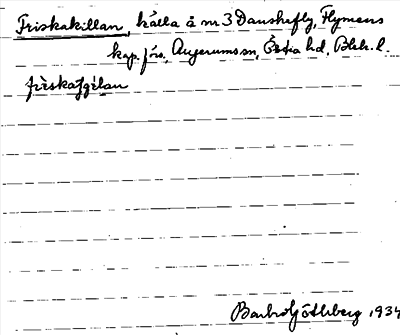 Friskakillan, källa å nr 3 Danskefly, Flymens
kap. förs., Augerums sn, Östra hd, Blek. l.
friskaɟɟélan
Barbro Göthberg 1934